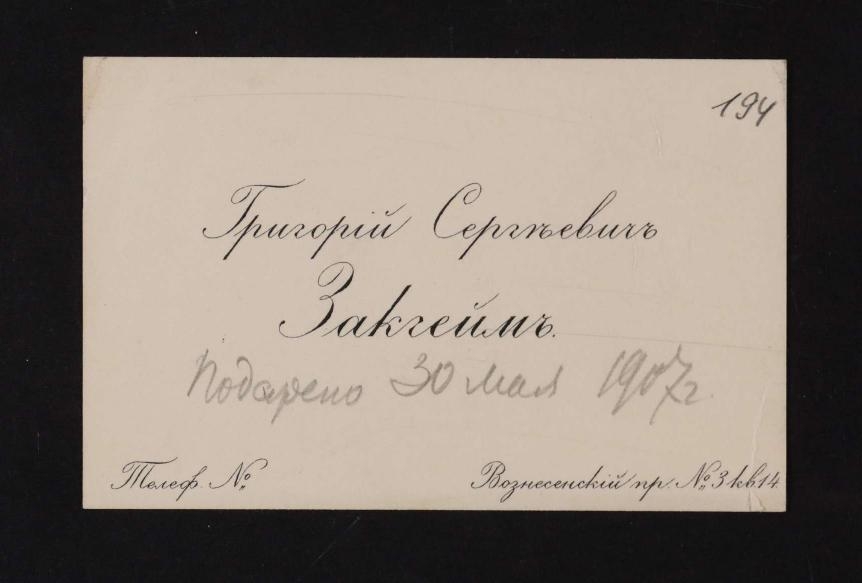 194
Григорій Сергѣевичъ
Закгеймъ.
Подарено 30 мая 1907 г.
Телеф. №
Вознесенскій пр. № 3 кв 14.